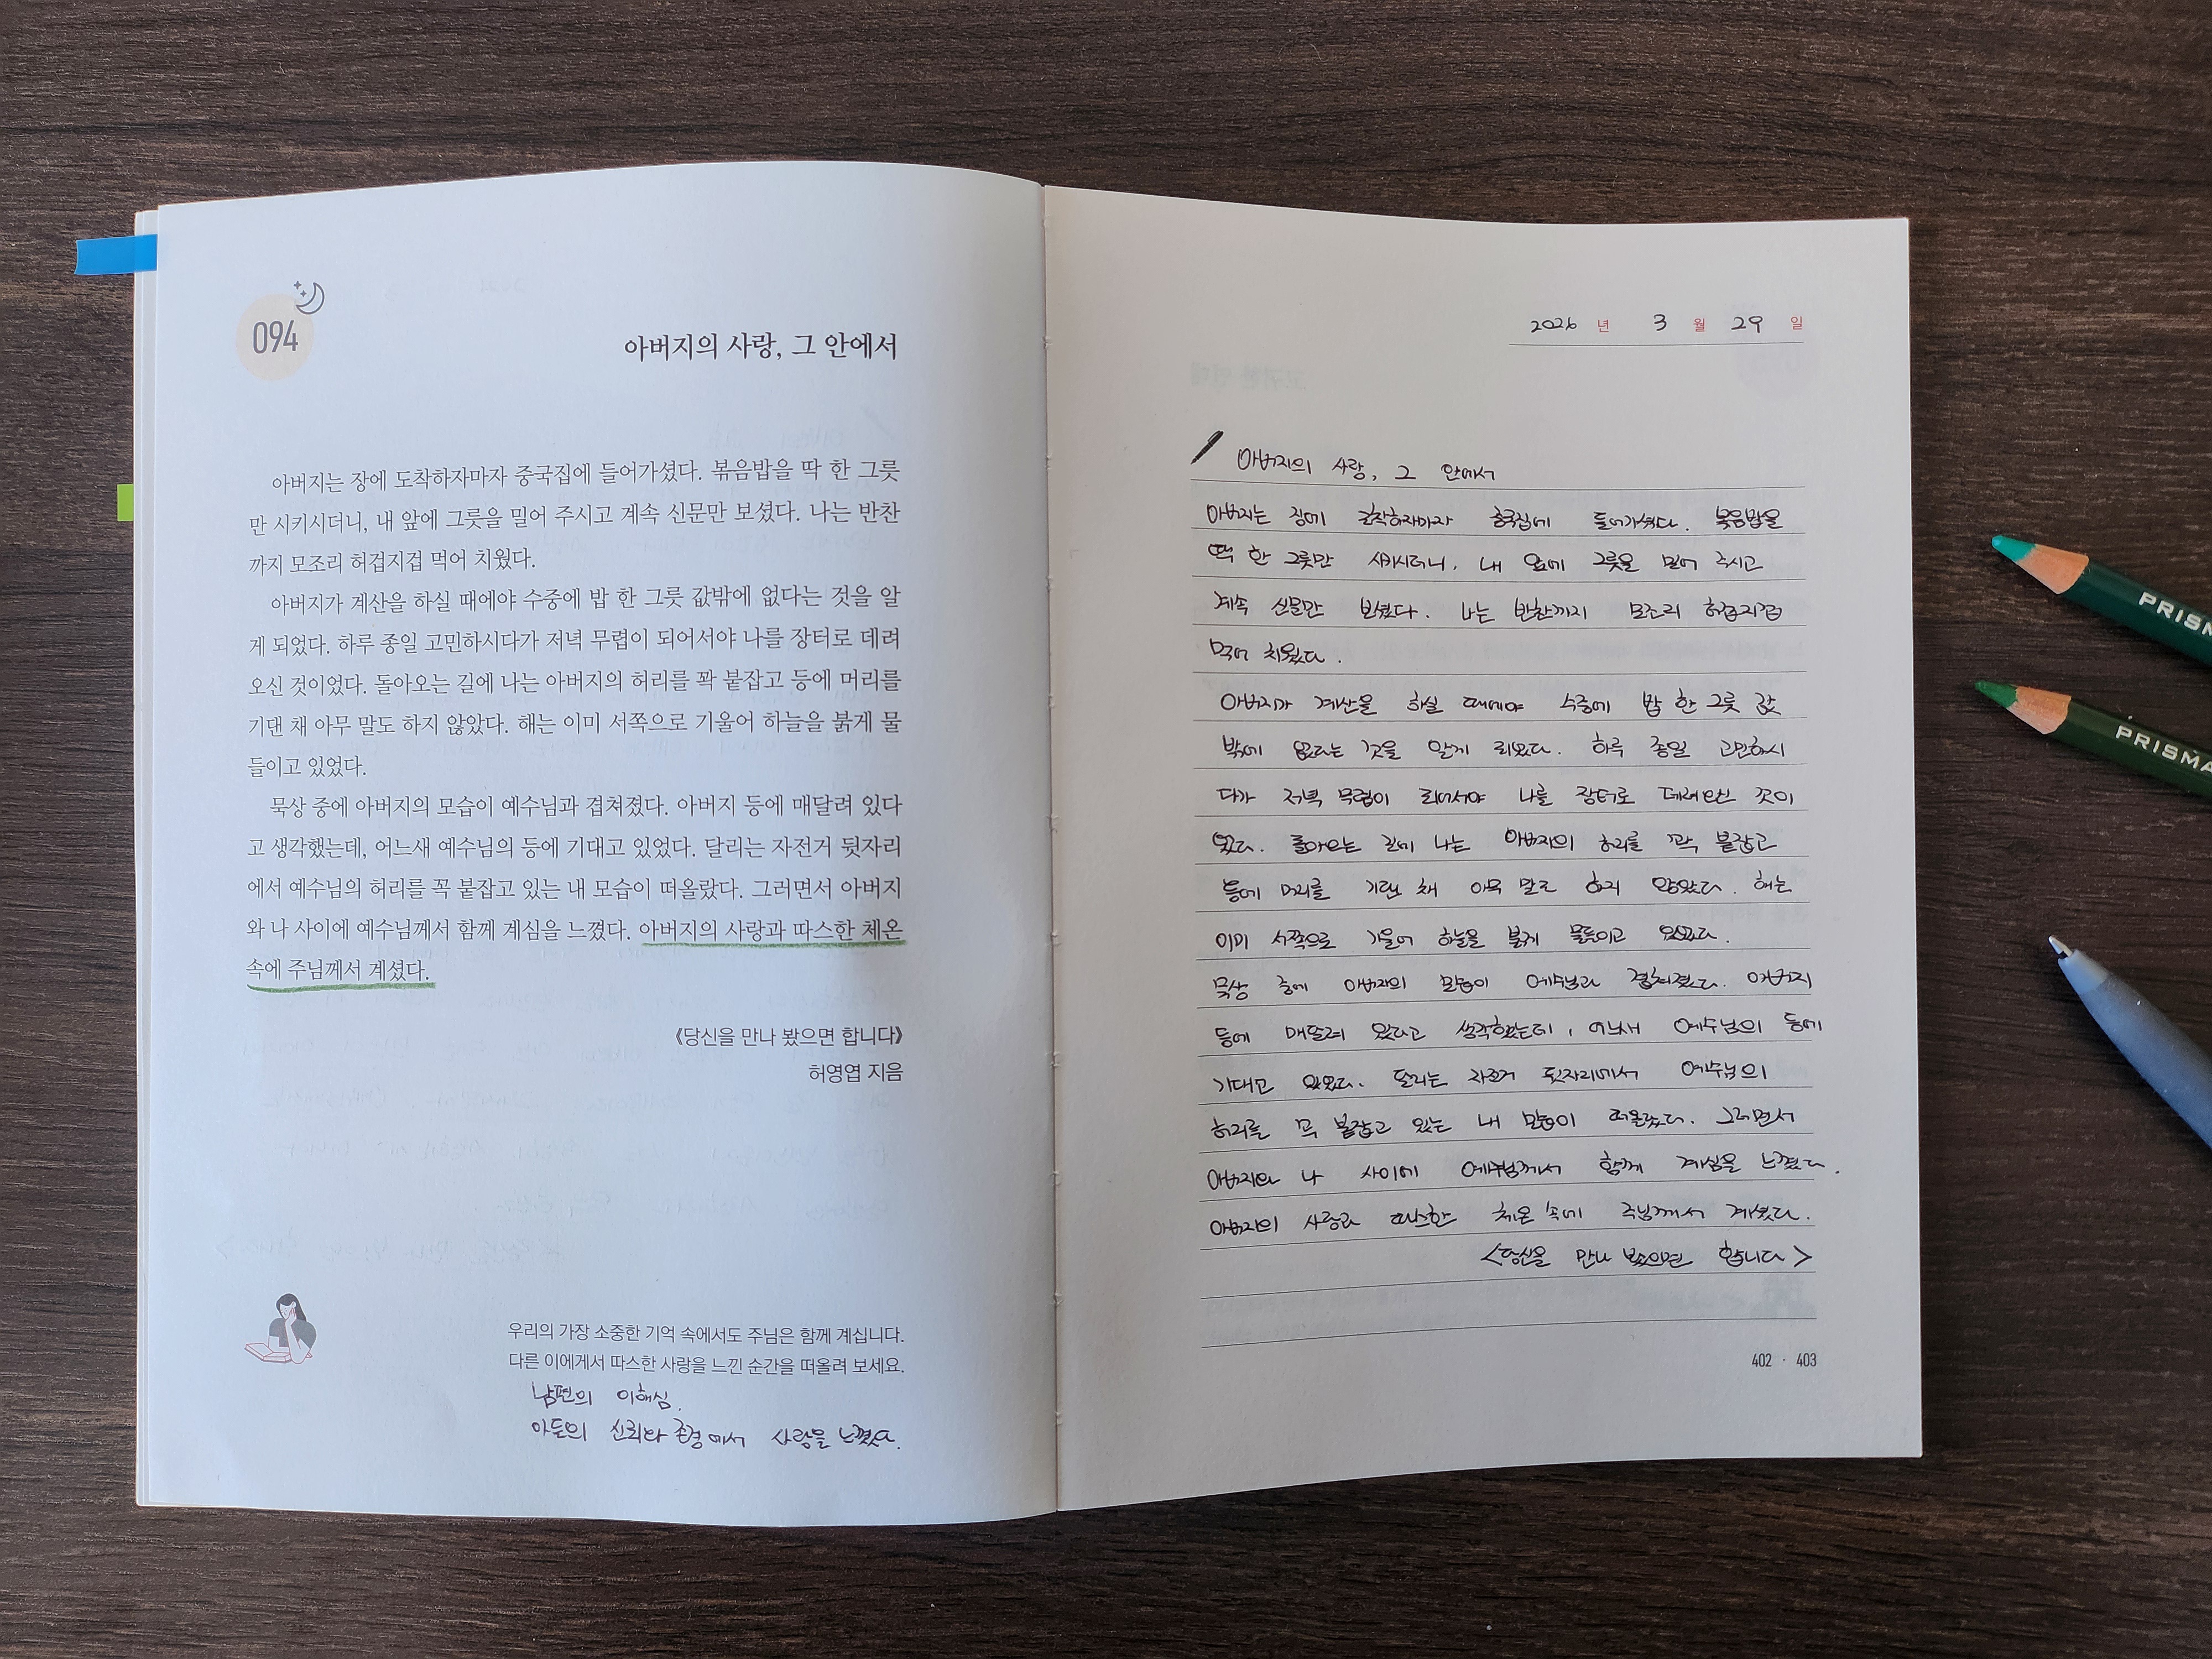 094
아버지의 사랑, 그 안에서
아버지는 장에 도착하자마자 중국집에 들어가셨다. 볶음밥을 딱 한 그릇
만 시키시더니, 내 앞에 그릇을 밀어 주시고 계속 신문만 보셨다. 나는 반찬
까지 모조리 허겁지겁 먹어 치웠다.
아버지가 계산을 하실 때에야 수중에 밥 한 그릇 값밖에 없다는 것을 알
게 되었다. 하루 종일 고민하시다가 저녁 무렵이 되어서야 나를 장터로 데려
오신 것이었다. 돌아오는 길에 나는 아버지의 허리를 꽉 붙잡고 등에 머리를
기댄 채 아무 말도 하지 않았다. 해는 이미 서쪽으로 기울어 하늘을 붉게 물
들이고 있었다.
묵상 중에 아버지의 모습이 예수님과 겹쳐졌다. 아버지 등에 매달려 있다
고 생각했는데, 어느새 예수님의 등에 기대고 있었다. 달리는 자전거 뒷자리
에서 예수님의 허리를 꼭 붙잡고 있는 내 모습이 떠올랐다. 그러면서 아버지
와 나 사이에 예수님께서 함께 계심을 느꼈다. 아버지의 사랑과 따스한 체온
속에 주님께서 계셨다.
《당신을 만나 봤으면 합니다》
허영엽 지음
우리의 가장 소중한 기억 속에서도 주님은 함께 계십니다.
다른 이에게서 따스한 사랑을 느낀 순간을 떠올려 보세요.
남편의 이해심.
아들의 신뢰와 존경에서 사랑을 느꼈다.
2026 년 3 월 29 일
아버지의 사랑, 그 안에서
아버지는 장에 도착하자마자 중국집에 들어가셨다. 볶음밥을
딱 한 그릇만 시키시더니, 내 앞에 그릇을 밀어 주시고
계속 신문만 보셨다. 나는 반찬까지 모조리 허겁지겁
먹어 치웠다.
아버지가 계산을 하실 때에야 수중에 밥 한 그릇 값
밖에 없다는 것을 알게 되었다. 하루 종일 고민하시
다가 저녁 무렵이 되어서야 나를 장터로 데려오신 것이
었다. 돌아오는 길에 나는 아버지의 허리를 꽉 붙잡고
등에 머리를 기댄 채 아무 말도 하지 않았다. 해는
이미 서쪽으로 기울어 하늘을 붉게 물들이고 있었다.
묵상 중에 아버지의 모습이 예수님과 겹쳐졌다. 아버지
등에 매달려 있다고 생각했는데, 어느새 예수님의 등에
기대고 있었다. 달리는 자전거 뒷자리에서 예수님의
허리를 꼭 붙잡고 있는 내 모습이 떠올랐다. 그러면서
아버지와 나 사이에 예수님께서 함께 계심을 느꼈다.
아버지의 사랑과 따스한 체온 속에 주님께서 계셨다.
<당신을 만나 봤으면 합니다>
402 · 403
PRISM
PRISMA